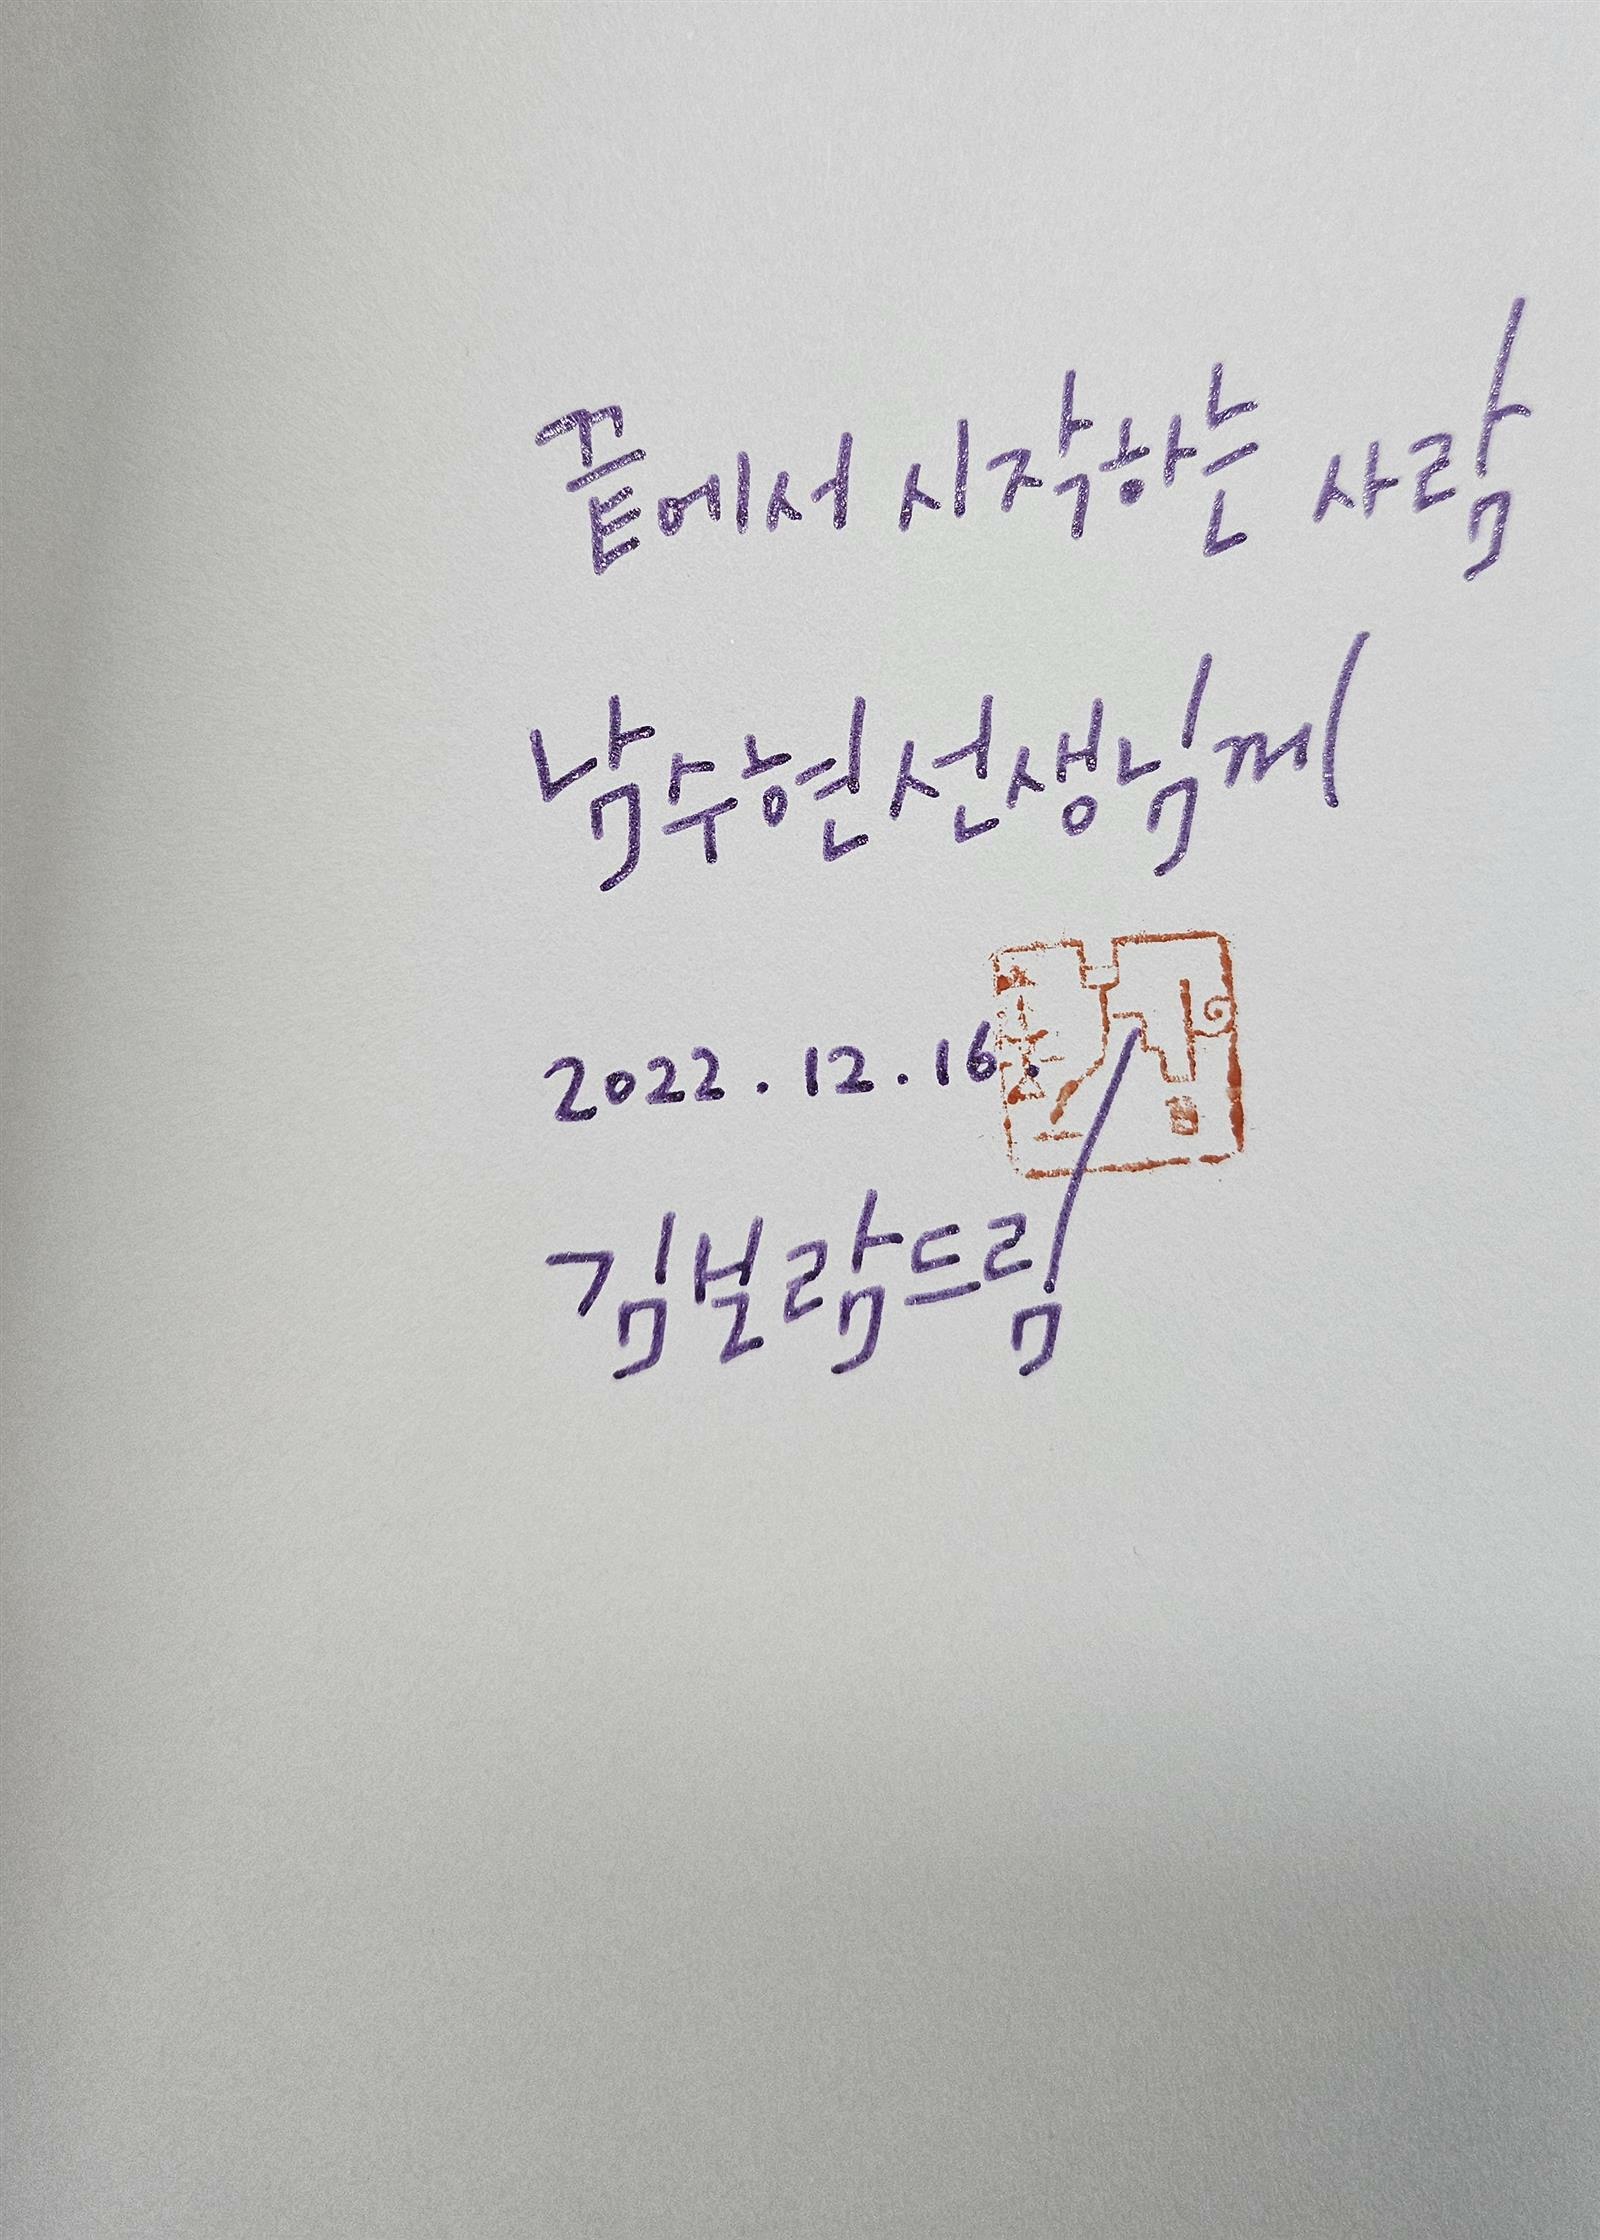 끝에서 시작하는 사람
남수현선생님께
2022. 12. 16.
김보람드림